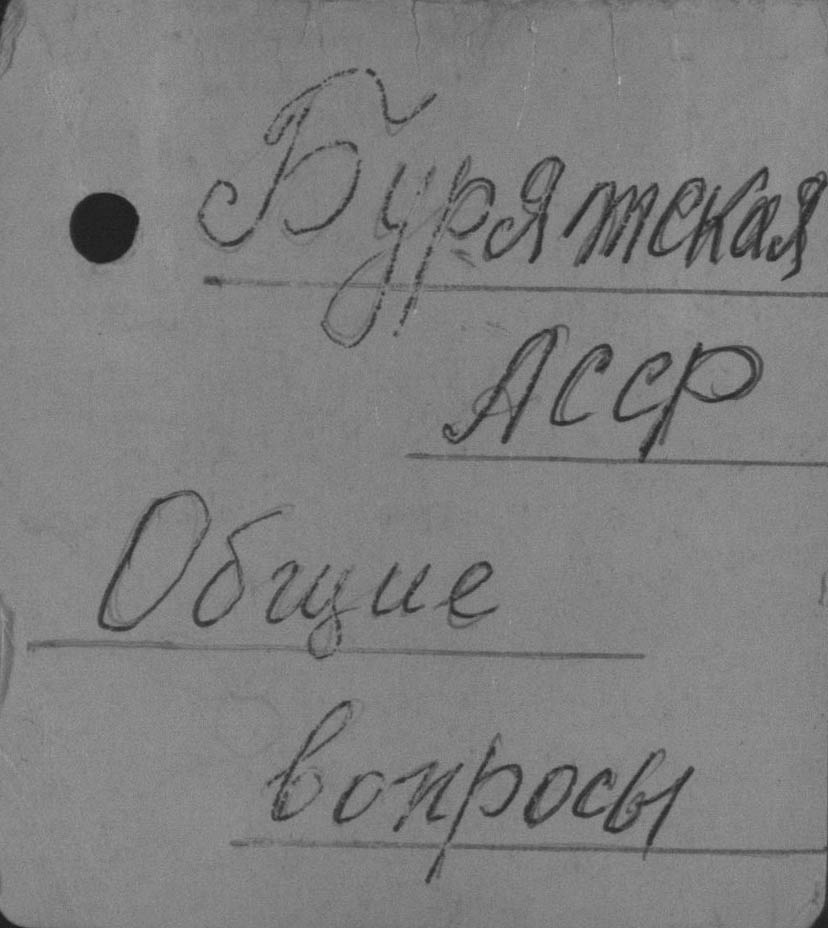 Бурятская
АССР
Общие
вопросы